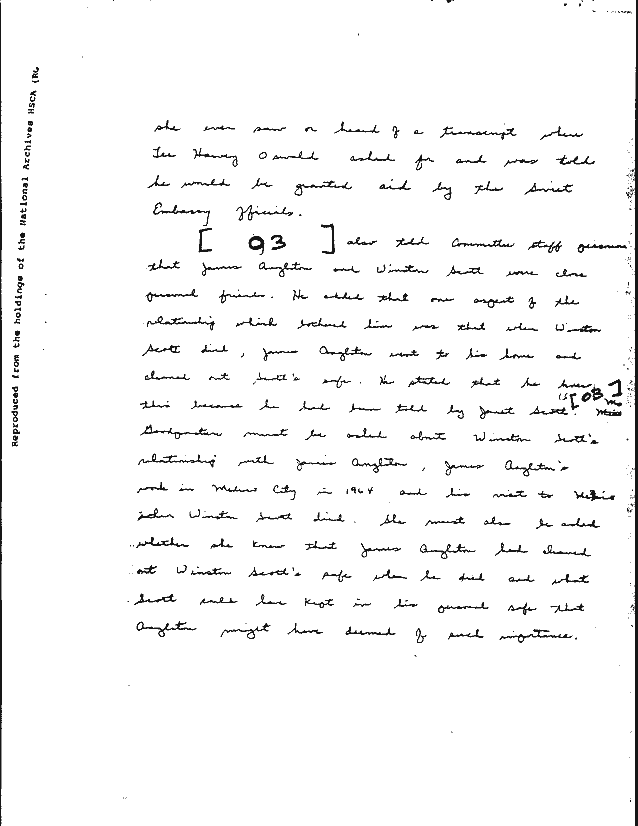 Reproduced from the holdings of the National Archives HSCA (RG
she ever saw or heard of a transcript where
Lee Harvey Oswald asked for and was told
he would be granted aid by the Soviet
Embassy officials.
[ 03 ] also told Committee staff
that James Angleton and Winston Scott were close
personal friends. He added that one aspect of the
relationship which bothered him was that when Winston
Scott died, James Angleton went to his home and
cleaned out Scott's safe. He stated that he knew
this because he had been told by Janet Scott. [03]
must be asked about Winston Scott's
relationship with James Angleton, James Angleton's
work in Mexico City in 1964 and his visit to Mexico
when Winston Scott died. She must also be asked
whether she knew that James Angleton had cleaned
out Winston Scott's safe when he died and what
Scott could have kept in his personal safe that
Angleton might have deemed of such importance.